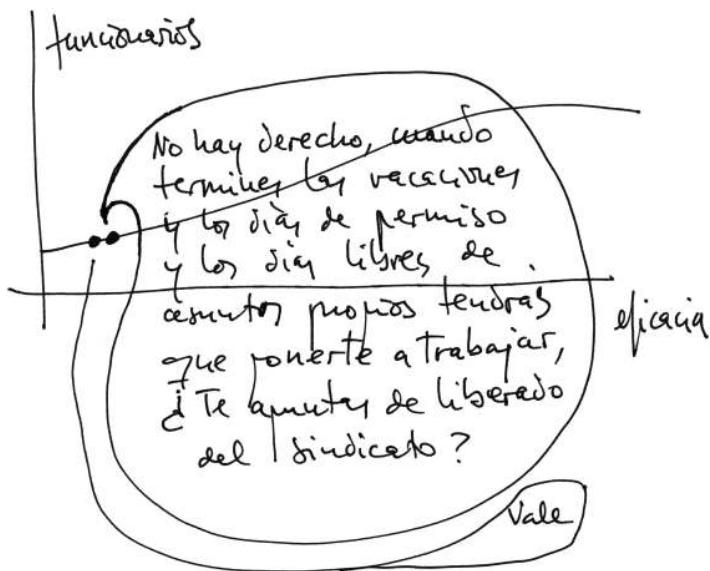 funcionarios
No hay derecho, cuando
termines las vacaciones
y los días de permiso
y los días libres de
asuntos propios tendrás
que ponerte a trabajar,
¿Te apuntas de liberado
del sindicato?
eficacia
Vale